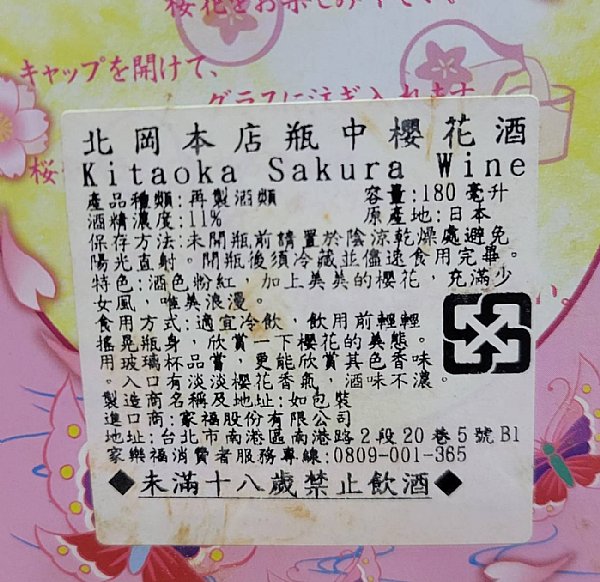 桜花をお楽しみ下さい。
キャップを開けて、
グラスに注ぎ入れます
桜
北岡本店瓶中櫻花酒
Kitaoka Sakura Wine
產品種類:再製酒類 容量:180毫升
酒精濃度:11% 原產地:日本
保存方法:未開瓶前請置於陰涼乾燥處避免
陽光直射。開瓶後須冷藏並儘速食用完畢。
特色:酒色粉紅，加上美美的櫻花，充滿少
女風，唯美浪漫。
食用方式:適宜冷飲，飲用前輕輕
搖晃瓶身，欣賞一下櫻花的美態。
用玻璃杯品嘗，更能欣賞其色香味
。入口有淡淡櫻花香氣，酒味不濃。
製造商名稱及地址:如包裝
進口商:家福股份有限公司
地址:台北市南港區南港路2段20巷5號B1
家樂福消費者服務專線:0809-001-365
◆未滿十八歲禁止飲酒◆